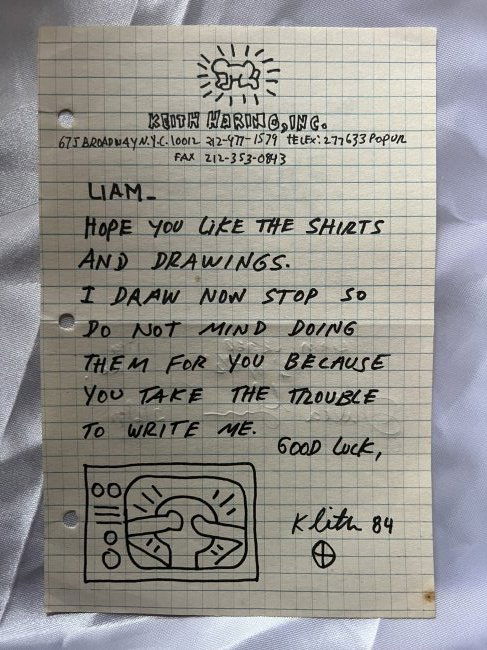 KEITH HARING, INC.
675 BROADWAY N.Y.C. 10012 212-477-1579 TELEX: 277633 POPUR
FAX 212-353-0843
LIAM-
HOPE YOU LIKE THE SHIRTS
AND DRAWINGS.
I DRAW NON STOP SO
DO NOT MIND DOING
THEM FOR YOU BECAUSE
YOU TAKE THE TROUBLE
TO WRITE ME.
GOOD LUCK,
Keith 84